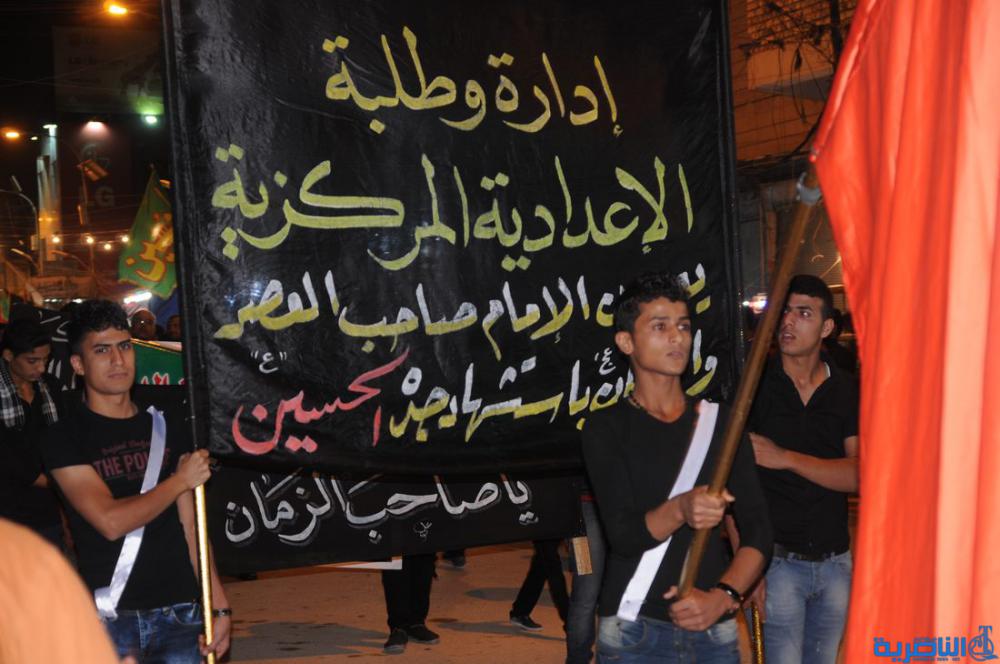 إدارة وطلبة
الإعدادية المركزية
الإمام صاحب العصر
باستشهاد جده الحسين "ع"
يا صاحب الزمان
THE PO
LG
الناصرية